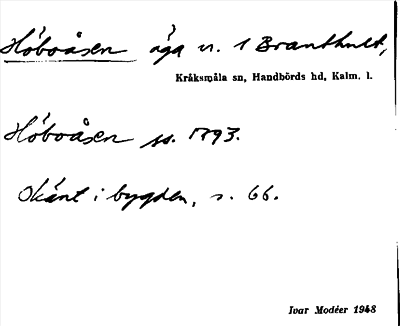 Höboåsen äga nr. 1 Branthult,
Kråksmåla sn, Handbörds hd, Kalm. l.
Höboåsen ss. 1793.
Okänt i bygden, s. 66.
Ivar Modéer 1948